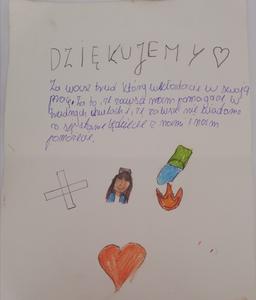 DZIĘKUJEMY
Za wasz trud którą wkładacie w swoją
pracę. Za to, że zawsze nam pomagacie w
trudnych chwilach i, że zawsze nie wiadomo
co się stanie będziecie z nami i nam
pomożecie.